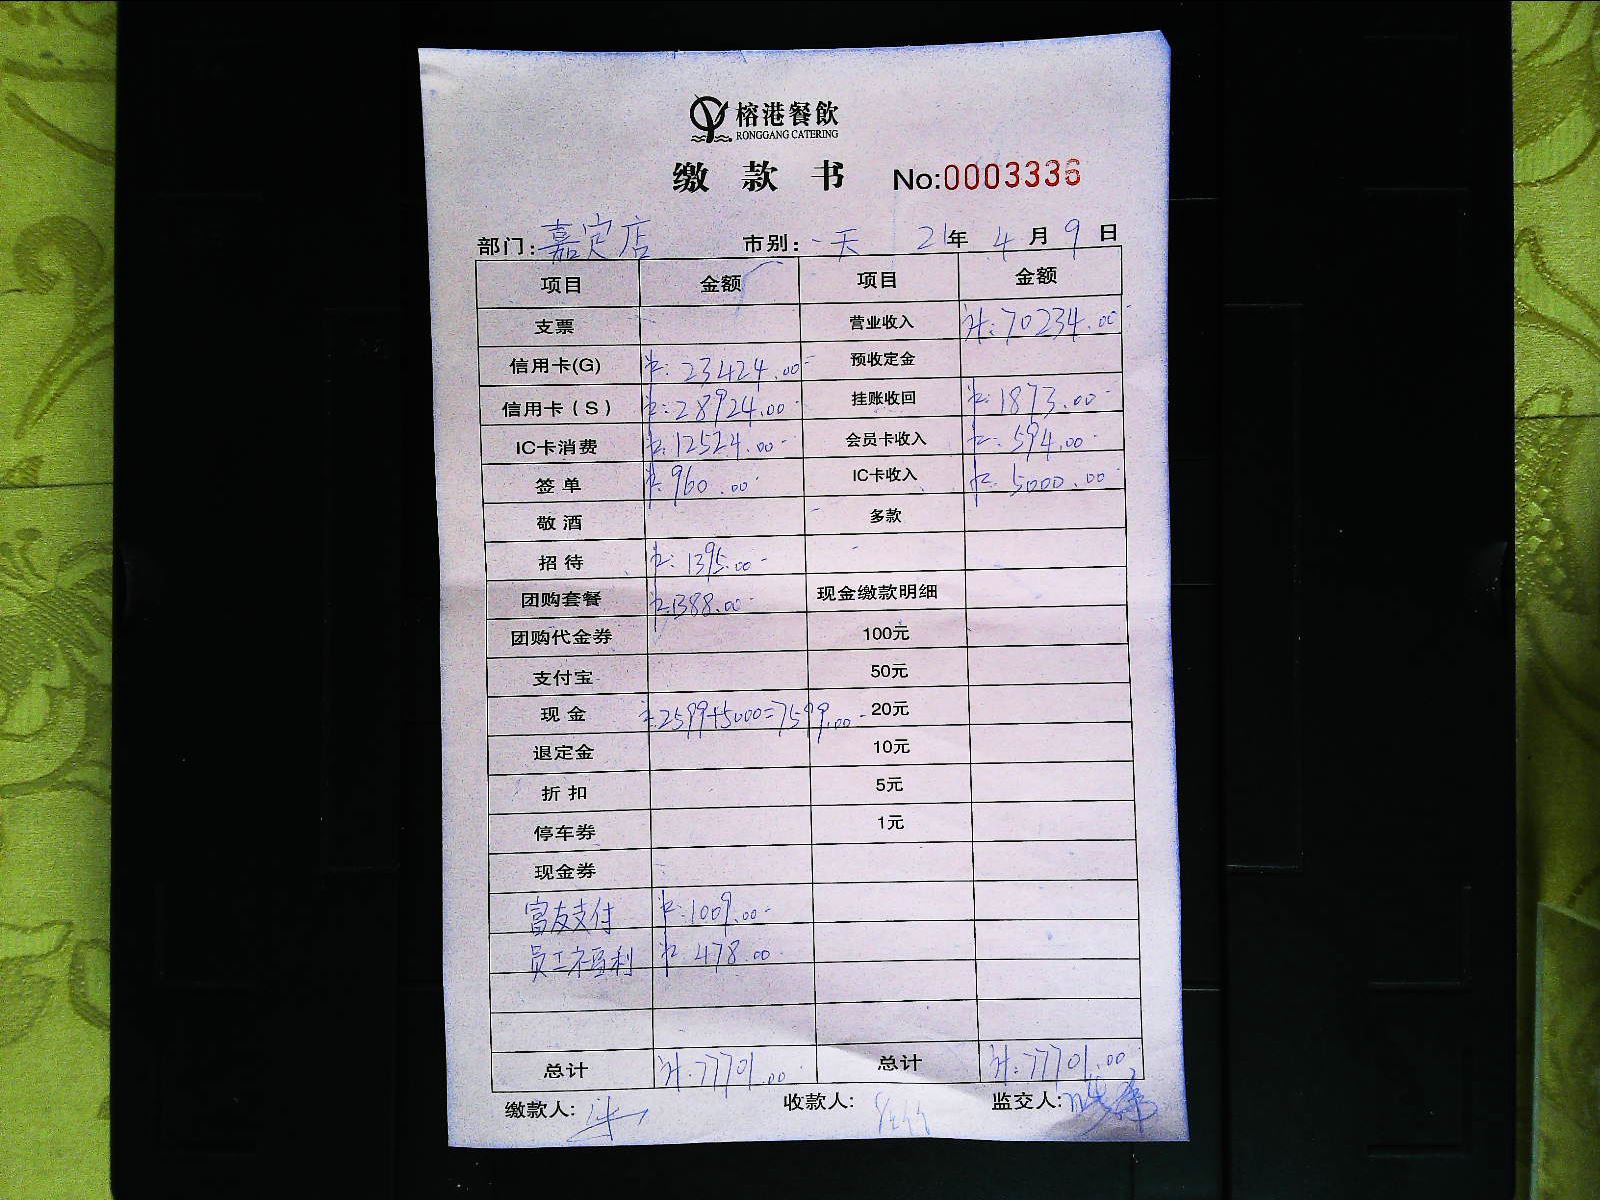 榕港餐飲
RONGGANG CATERING
缴款书 No:0003336
部门: 嘉定店 市别: 一天 21年 4月 9日
项目 金额 项目 金额
支票 营业收入 计:70234.00
信用卡(G) 23424.00 预收定金
信用卡(S) 28924.00 挂账收回 1873.00
IC卡消费 12524.00 会员卡收入 594.00
签单 960.00 IC卡收入 5000.00
敬酒 多款
招待 1395.00
团购套餐 1388.00 现金缴款明细
团购代金券 100元
支付宝 50元
现金 2599+5000=7599.00 20元
退定金 10元
折扣 5元
停车券 1元
现金券
富友支付 1009.00
员工福利 478.00
总计 计:77701.00 总计 计:77701.00
缴款人: 收款人: 监交人: